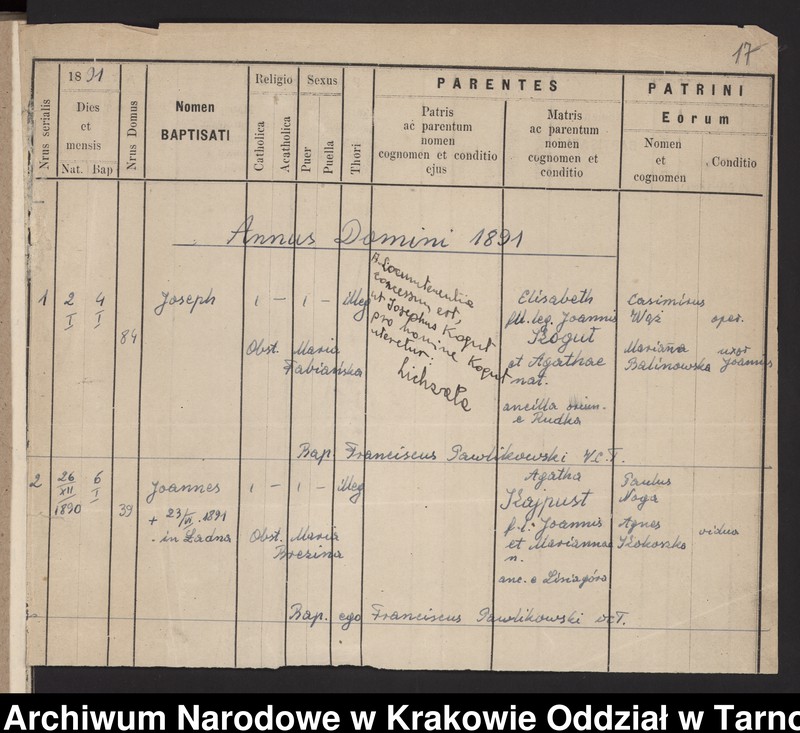 17
1891
Nrus serialis
Dies
et
mensis
Nat. Bap
Nrus Domus
Nomen
BAPTISATI
Religio
Catholica
Acatholica
Sexus
Puer
Puella
Thori
PARENTES
Patris
ac parentum
nomen
cognomen et conditio
ejus
Matris
ac parentum
nomen
cognomen et
conditio
PATRINI
Eorum
Nomen
et
cognomen
Conditio
Annus Domini 1891
1
2
I
4
I
84
Joseph
1 — 1 — Illeg
Obst. Maria
Fabiańska
concessum est,
ut Josephus Kogut
pro nomine Kogut
uteretur.
Elisabeth
fil. leg. Joannis
Kogut
et Agathae
nat.
ancilla oriun.
e Rudka
Casimirus
Wąż oper.
Marianna uxor
Balinowska Joannis
Bap. Franciscus Pawlikowski V.c.T.
2
26
XII
1890
6
I
39
Joannes
+ 23/VI. 1891
in Ładna
1 — 1 — Illeg
Obst. Maria
Brezina
Agatha
Kajpust
f. l. Joannis
et Mariannae
n.
anc. e Lisiagóra
Paulus
Noga
Agnes
Kokoszka vidua
Bap. ego Franciscus Pawlikowski VcT.
Archiwum Narodowe w Krakowie Oddział w Tarno